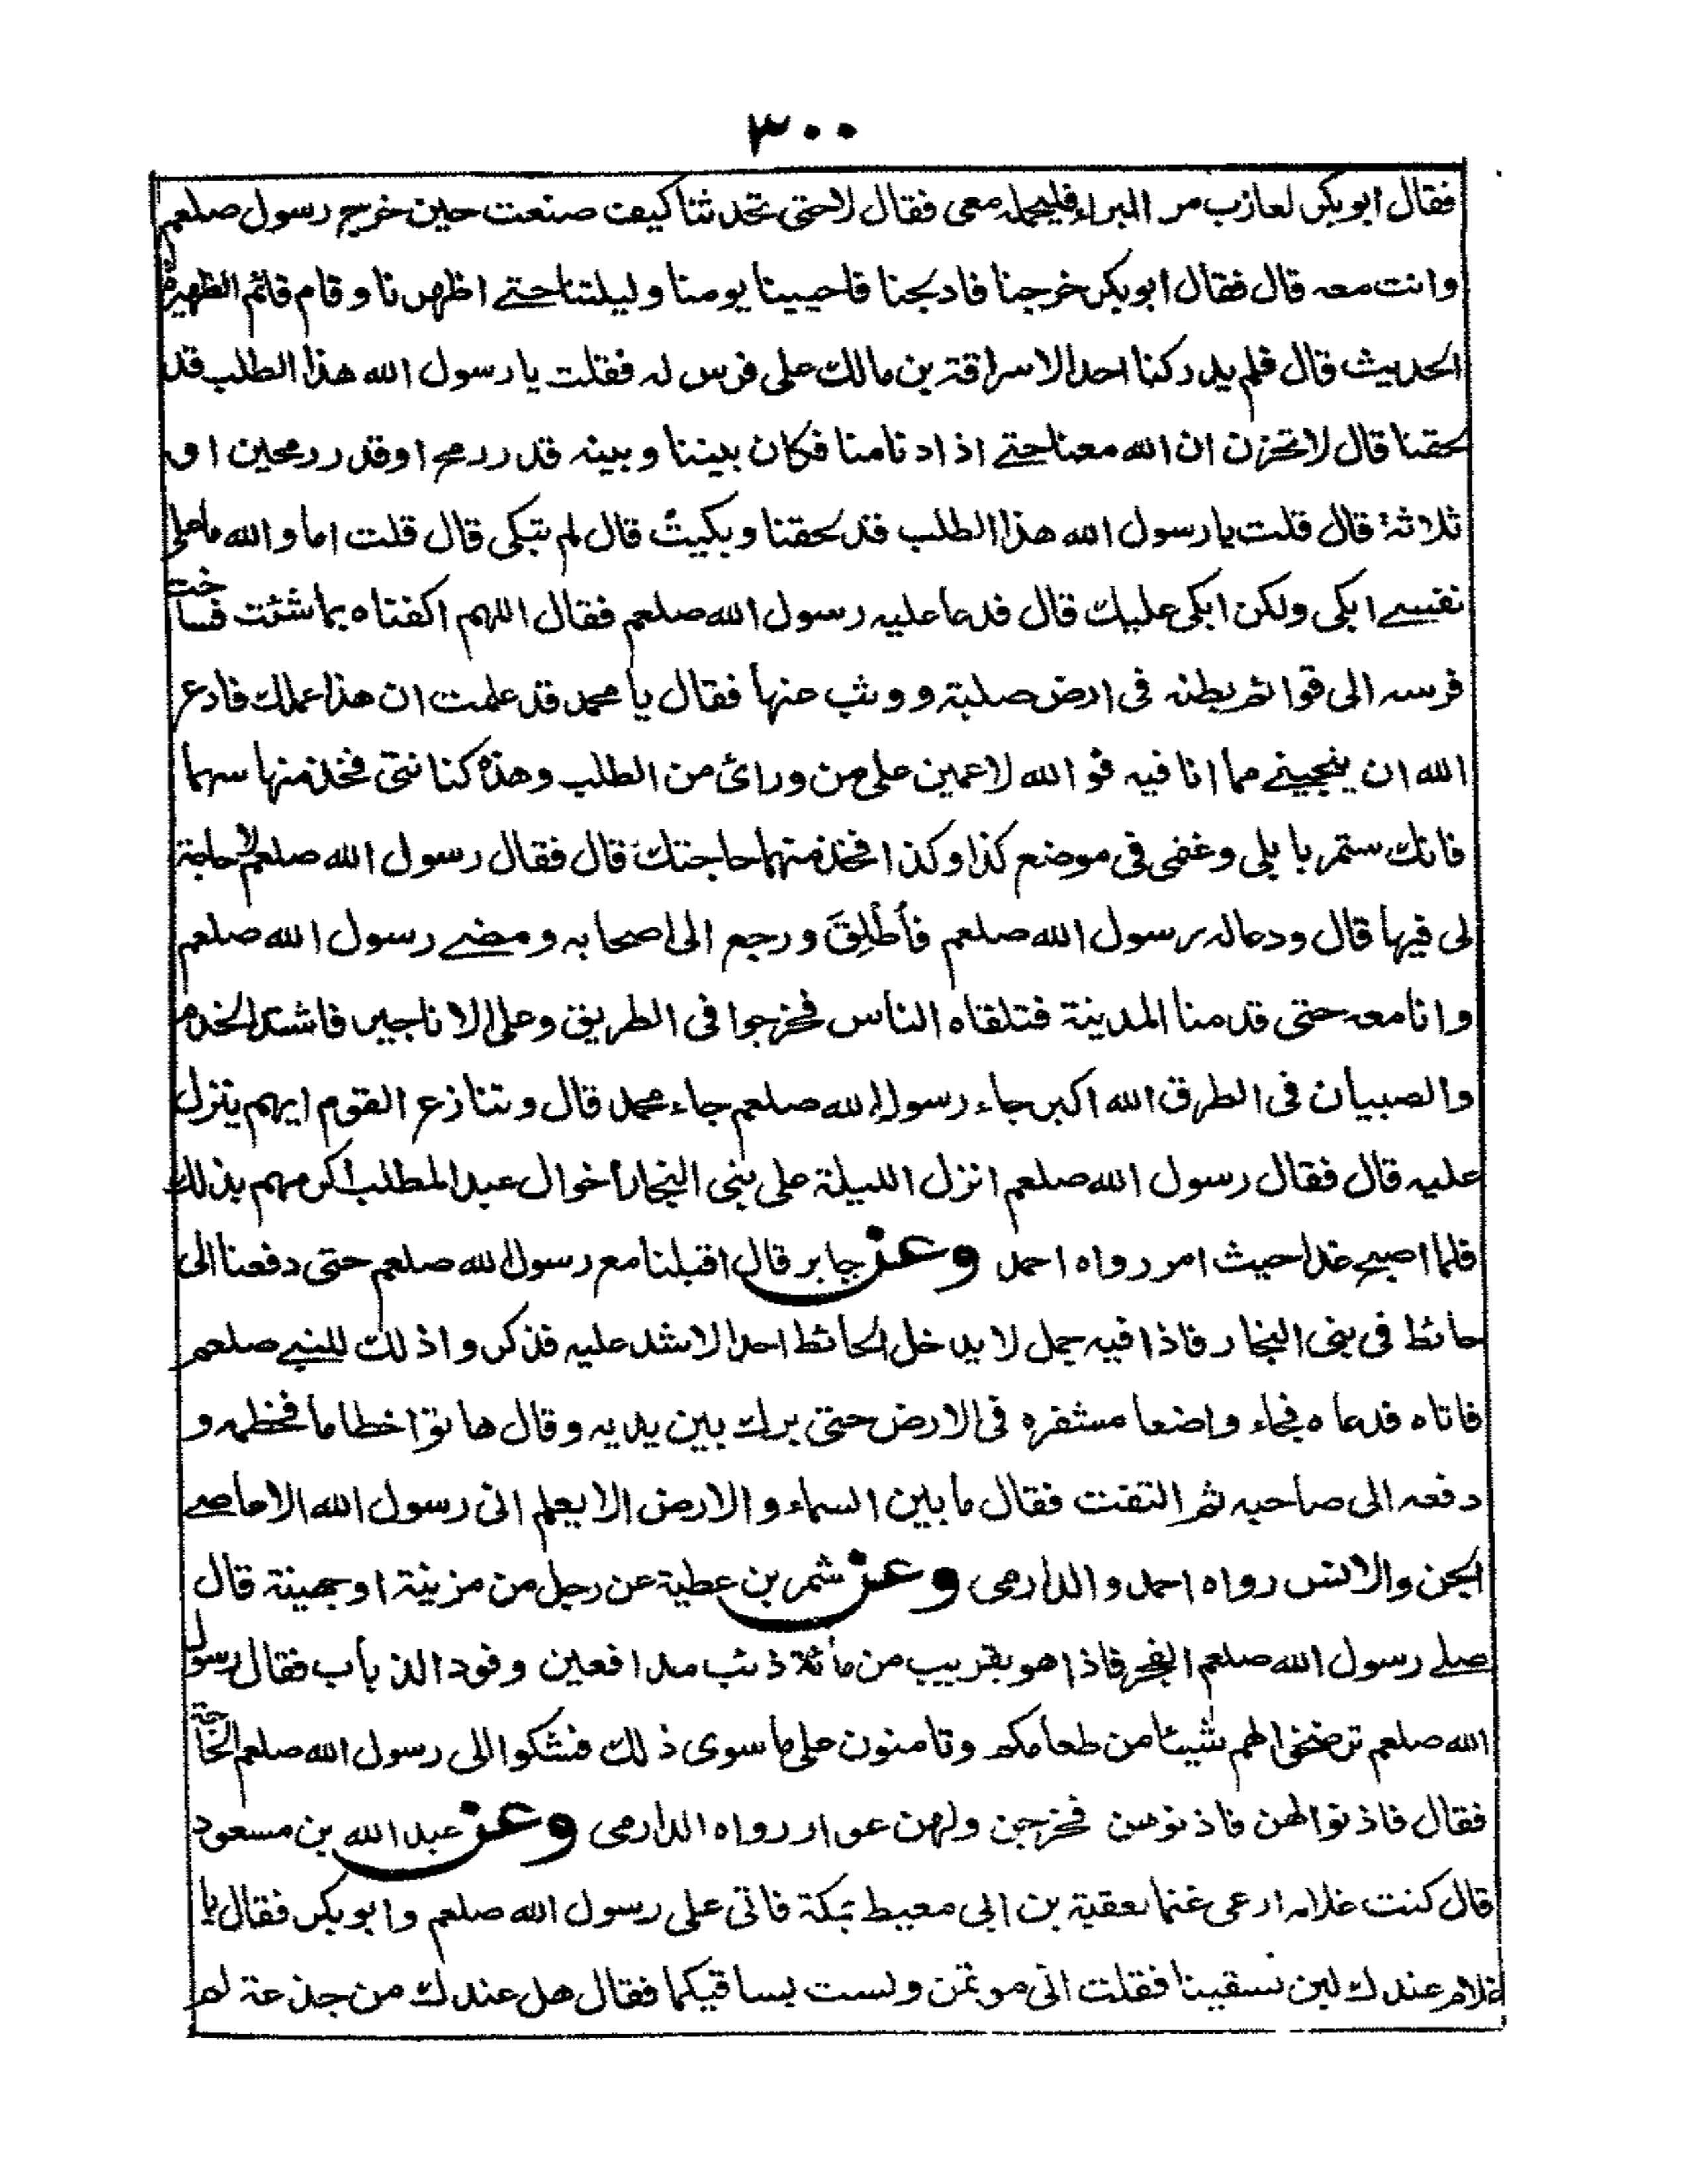 ٣٠٠
فقال ابوبكر لعازب مر البراء فليحمله معى فقال لا حتى تحدثنا كيف صنعت حين خرج رسول صلعم
وانت معه قال فقال ابوبكر خرجنا فادلجنا فاحيينا يومنا وليلتنا حتے اظهرنا وقام قائم الظهيرة
الحديث قال فلم يدركنا احد الا سراقة بن مالك على فرس له فقلت يا رسول الله هذا الطلب قد
لحقنا قال لا تحزن ان الله معنا حتے اذا دنا منا فكان بيننا وبينه قدر رمح اوقدر رمحين او
ثلاثة قال قلت يا رسول الله هذا الطلب قد لحقنا وبكيت قال لم تبكى قال قلت اما والله ما على
نفسے ابكى ولكن ابكى عليك قال فدعا عليه رسول الله صلعم فقال اللهم اكفناه بما شئت فساخت
فرسه الى قوائم بطنه فى ارض صلبة ووثب عنها فقال يا محمد قد علمت ان هذا عملك فادع
الله ان ينجينے مما انا فيه فو الله لاعمين على من ورائ من الطلب وهذه كنانتى فخذ منها سهما
فانك ستمر بابلى وغنمى فى موضع كذا وكذا فخذ منهما حاجتك قال فقال رسول الله صلعم لا حاجة
لى فيها قال ودعا له رسول الله صلعم فأُطْلِقَ ورجع الى اصحابه ومضے رسول الله صلعم
وانا معه حتى قدمنا المدينة فتلقاه الناس فخرجوا فى الطريق وعلى الاناجير فاشتد الخدم
والصبيان فى الطرق الله اكبر جاء رسول الله صلعم جاء محمد قال وتنازع القوم ايهم ينزل
عليه قال فقال رسول الله صلعم انزل الليلة على بنى النجار أخوال عبد المطلب اكرمهم بذلك
فلما اصبح غدا حيث امر رواه احمد وعن جابر قال اقبلنا مع رسول الله صلعم حتى دفعنا الى
حائط فى بنى النجار فاذا فيه جمل لا يدخل الحائط احد الا شد عليه فذكروا ذلك للنبے صلعم
فاتاه فدعاه فجاء واضعا مشفره فى الارض حتى برك بين يديه وقال هاتوا خطاما فخطمه و
دفعه الى صاحبه ثم التفت فقال ما بين السماء والارض الا يعلم انى رسول الله الا عاصے
الجن والانس رواه احمد والدارمى وعن شمر بن عطية عن رجل من مزينة او جهينة قال
صلے رسول الله صلعم الفجر فاذا هو بقريب من مائة ذئب مدافعين وفود الذياب فقال رسول
الله صلعم ترضخوا لهم شيئا من طعامكم وتامنون على ما سوى ذلك فشكوا الى رسول الله صلعم الحاجة
فقال فاذنوا لهن فاذنوهن فخرجن ولهن عوار رواه الدارمى وعن عبد الله بن مسعود
قال كنت غلاما ارعى غنما لعقبة بن ابى معيط بمكة فاتى على رسول الله صلعم وابوبكر فقال يا
غلام عندك لبن نسقينا فقلت انى موتمن ولست بساقيكما فقال هل عندك من جذعة لم